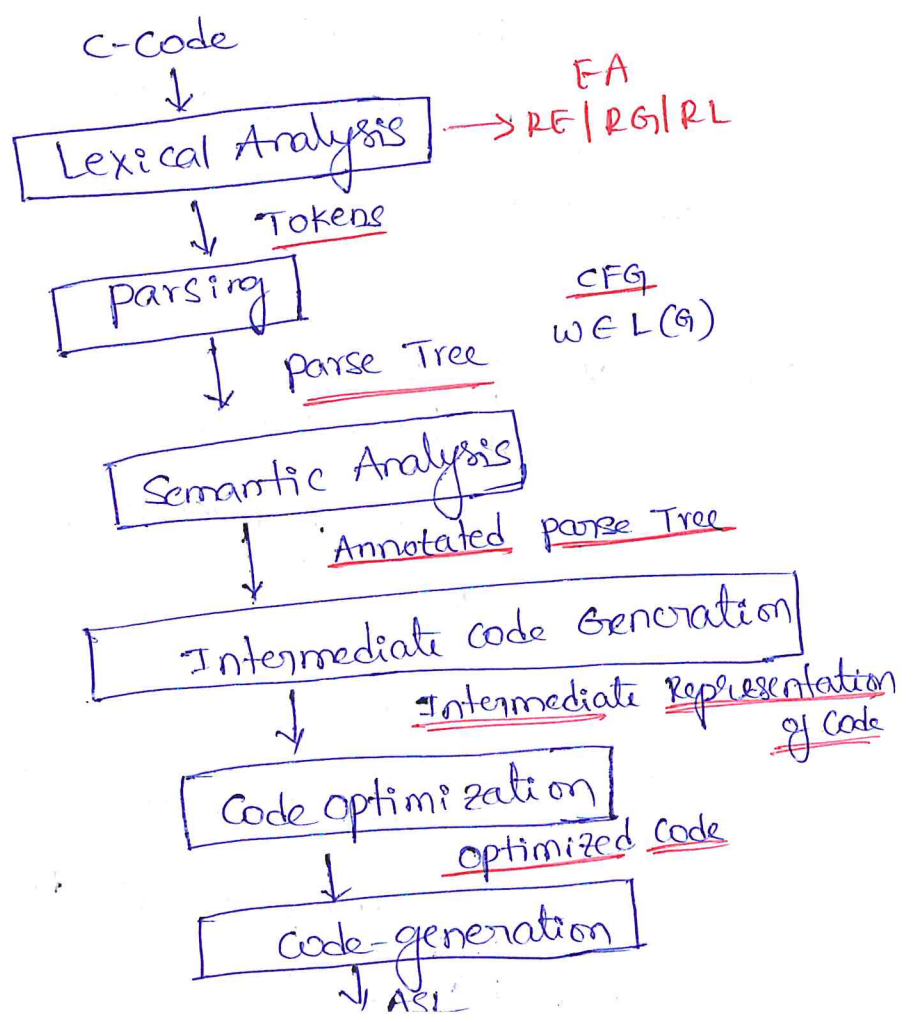 C-Code
FA
RE | RG | RL
Lexical Analysis
Tokens
Parsing
CFG
W ∈ L(G)
Parse Tree
Semantic Analysis
Annotated parse Tree
Intermediate code Generation
Intermediate Representation
of Code
Code optimization
optimized code
code-generation
ASL